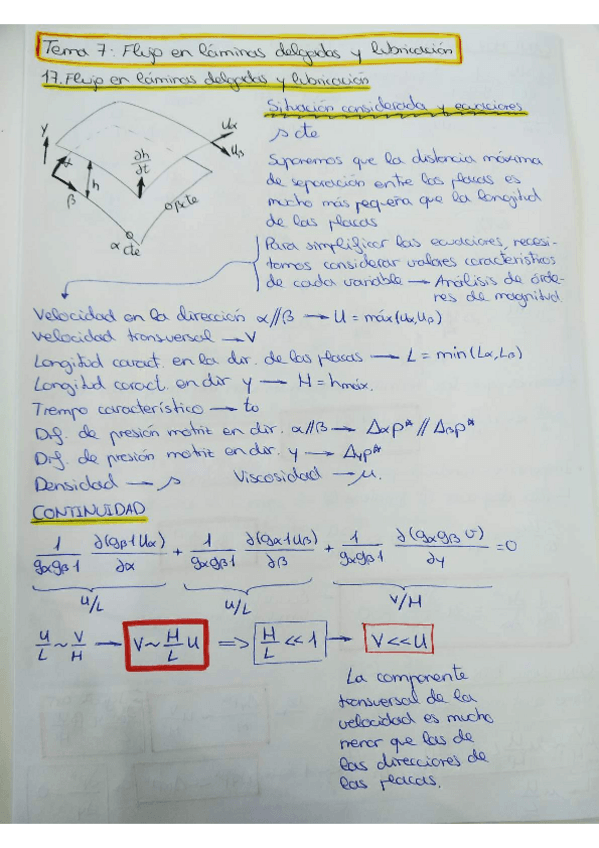 Tema 7: Flujo en láminas delgadas y lubricación
17. Flujo en láminas delgadas y lubricación
Situación considerada y ecuaciones
ρ cte
Suponemos que la distancia máxima
de separación entre las placas es
mucho más pequeña que la longitud
de las placas
y
α
β
h
∂h/∂t
uα
uβ
β cte
α cte
Para simplificar las ecuaciones, necesi-
tamos considerar valores característicos
de cada variable → Análisis de órde-
nes de magnitud.
Velocidad en la dirección α//β → U = máx(uα,uβ)
Velocidad transversal → V
Longitud caract. en la dir. de las placas → L = min(Lα,Lβ)
Longitud caract. en dir y → H = hmáx.
Tiempo característico → to
Dif. de presión motriz en dir. α//β → Δαp* // Δβp*
Dif. de presión motriz en dir. y → Δyp*
Densidad → ρ Viscosidad → μ.
CONTINUIDAD
1/(gαgβ1) ∂(gβ1uα)/∂α + 1/(gαgβ1) ∂(gα1uβ)/∂β + 1/(gαgβ1) ∂(gαgβ v)/∂y = 0
u/L u/L v/H
u/L ~ V/H → V ~ H/L u ⇒ H/L << 1 → V << U
La componente
transversal de la
velocidad es mucho
menor que las de
las direcciones de
las placas.